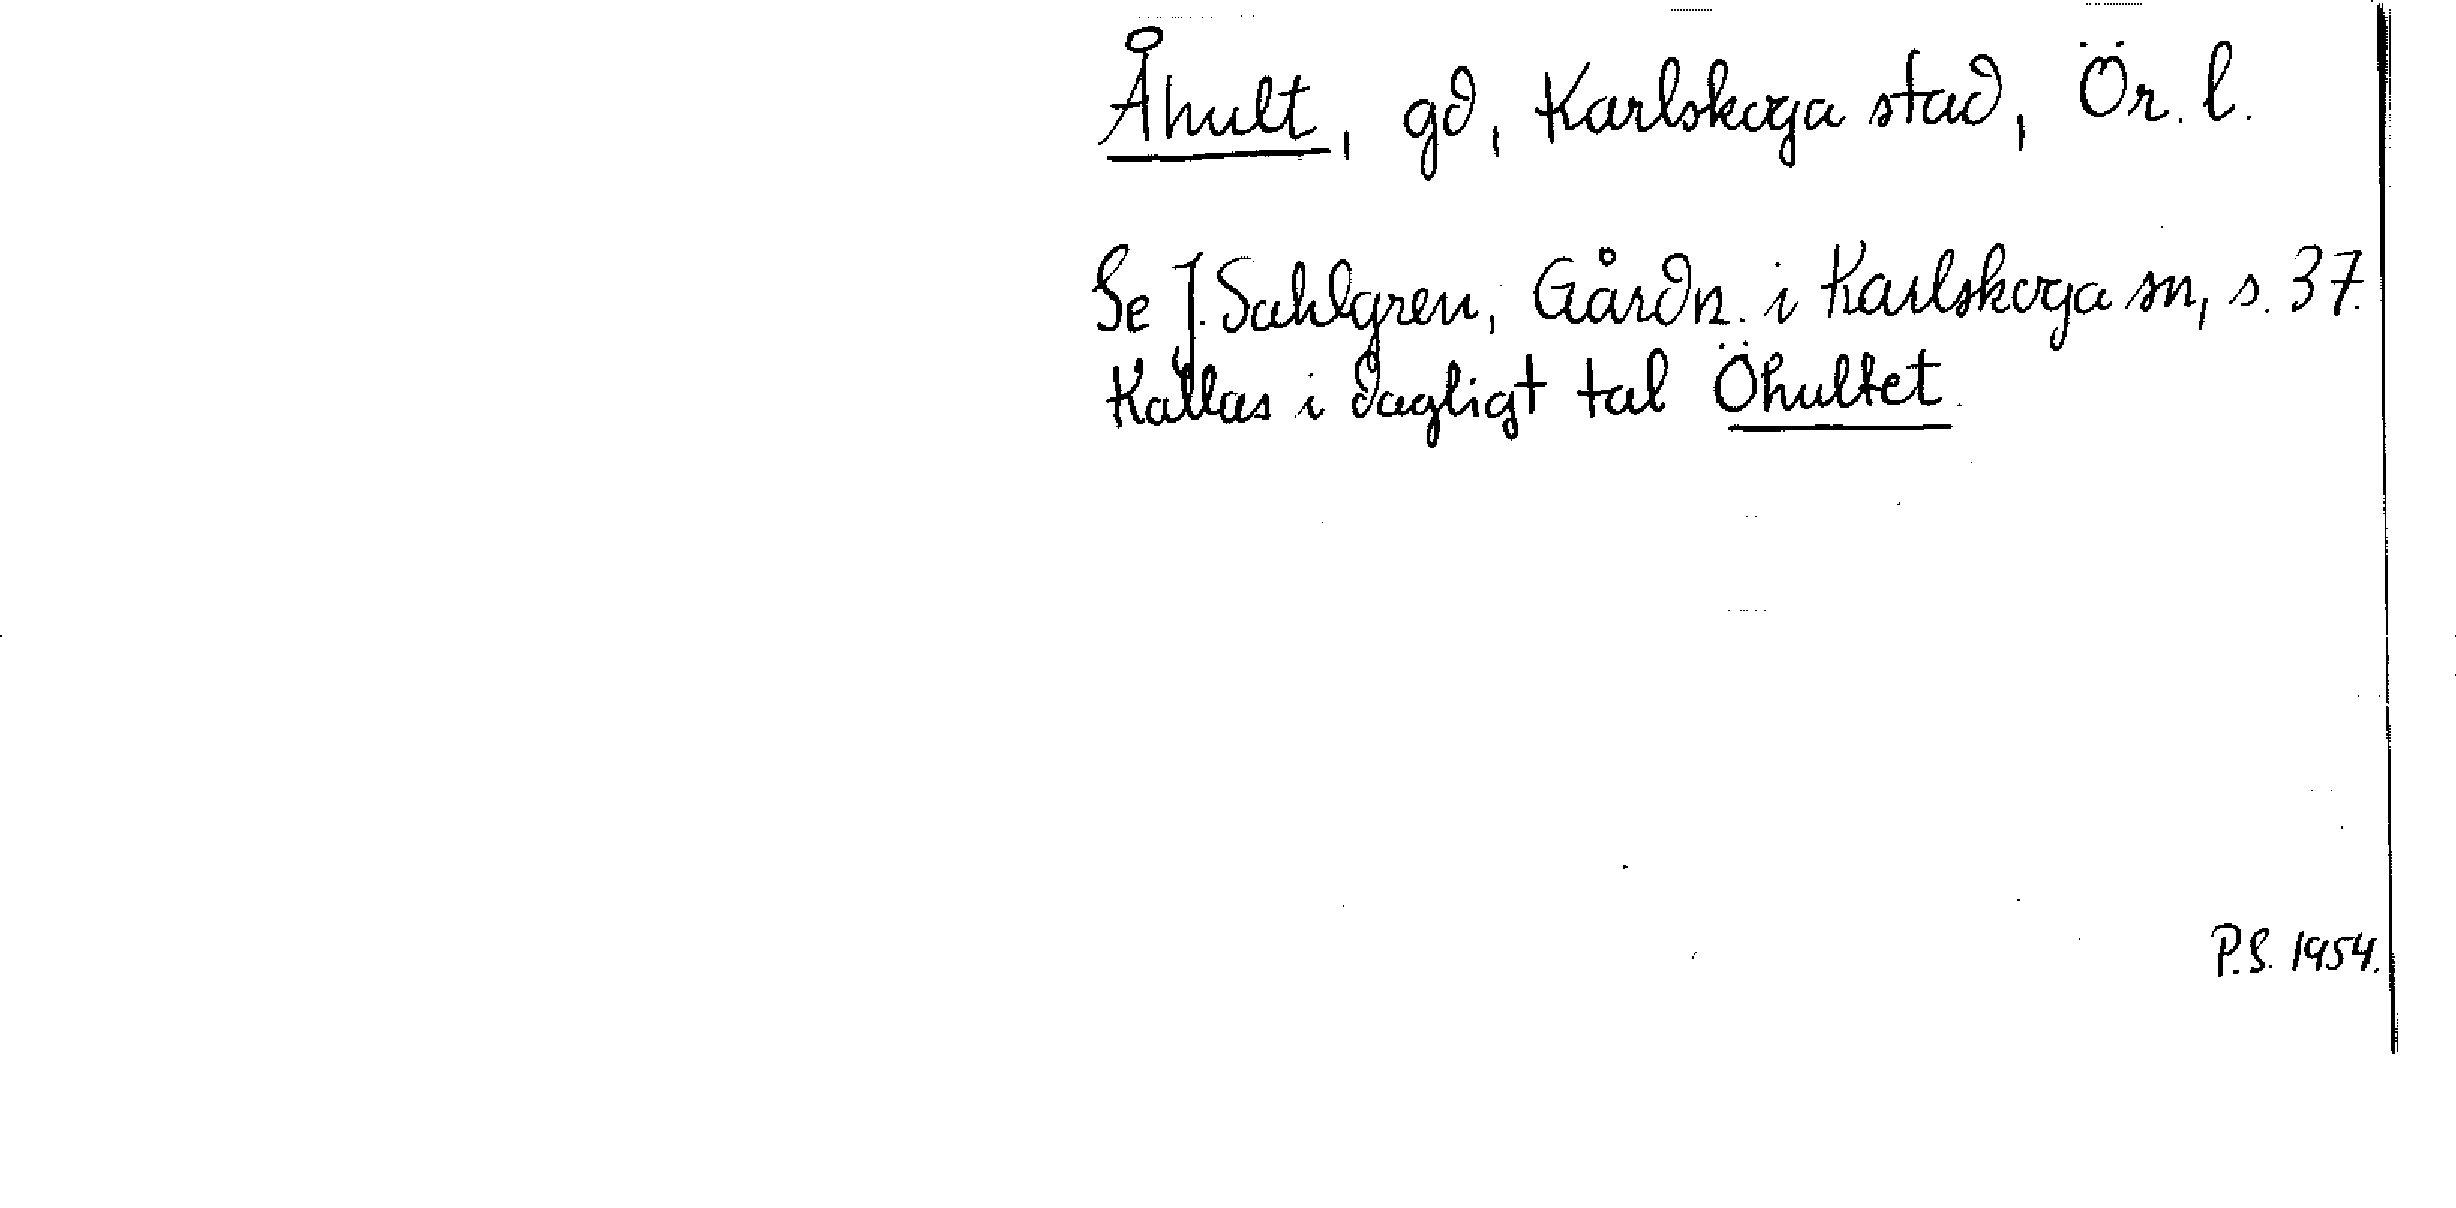 Åhult, gd, Karlskoga stad, Ör. l.
Se J. Sahlgren, Gårdn. i Karlskoga sn, s. 37.
Kallas i dagligt tal Öhultet.
P.S. 1954.